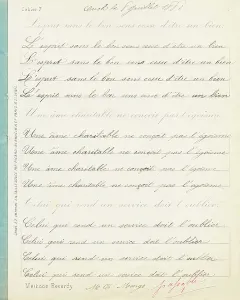 L'esprit sans le bon sens cesse d'être un bien
L'esprit sans le bon sens cesse d'être un bien
L'esprit sans le bon sens cesse d'être un bien
L'esprit sans le bon sens cesse d'être un bien
L'esprit sans le bon sens cesse d'être un bien
Une âme charitable ne conçoit pas l'égoïsme
Une âme charitable ne conçoit pas l'égoïsme
Une âme charitable ne conçoit pas l'égoïsme
Une âme charitable ne conçoit pas l'égoïsme
Une âme charitable ne conçoit pas l'égoïsme
Celui qui rend un service doit l'oublier
Celui qui rend un service doit l'oublier
Celui qui rend un service doit l'oublier
Celui qui rend un service doit l'oublier
Celui qui rend un service doit l'oublier